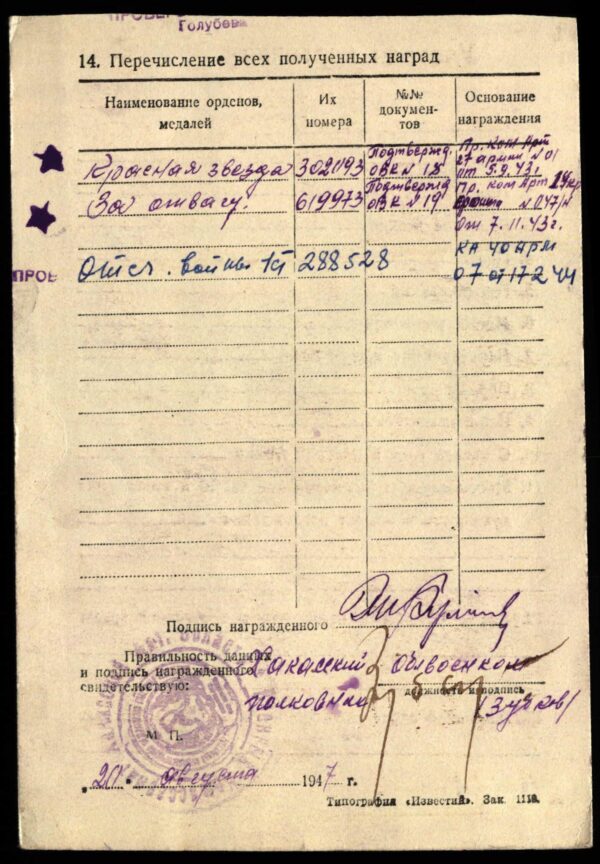 Голубев
14. Перечисление всех полученных наград
Наименование орденов, медалей
Их номера
№№ документов
Основание награждения
Красная звезда 302093 Подтвержд. ОВК № 18 Пр. Ком Арт 27 армии № 01 от 5.9.43 г
За отвагу. 619973 Подтвержд ОВК № 19 Пр. Ком Арт № 047/н От 7.11.43 г.
ПРОВ
Отеч. войны 288528 КА 40 АРМ 07 от 17 2 44
Подпись награжденного
Правильность данных
и подпись награжденного
свидетельствую:
Хакасский Облвоенком
полковник
должность и подпись
/Зуйков/
М. П.
„20" августа 1947 г.
Типография «Известий». Зак. 1113.